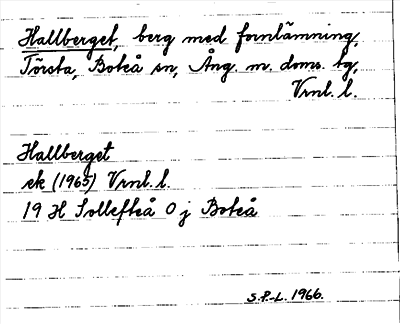 Hallberget, berg med fornlämning,
Törsta, Boteå sn, Ång. m. doms. tg,
Vrnl. l.
Hallberget
ek (1965) Vrnl. l.
19 H Sollefteå 0 j Boteå
S.P.-L. 1966.